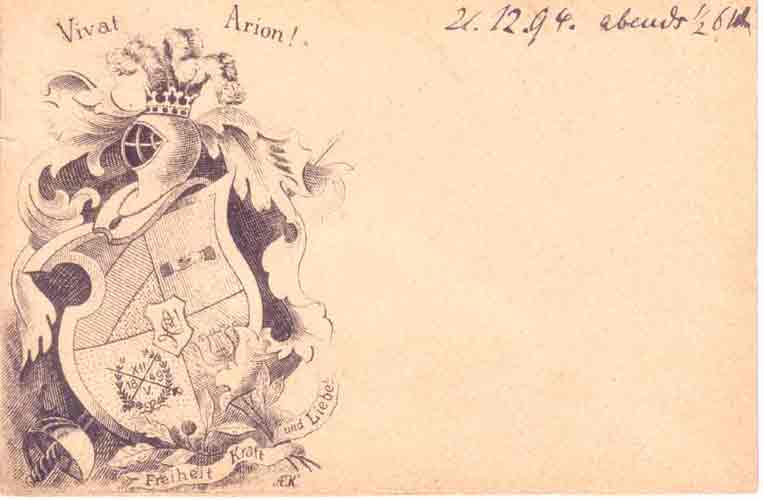 Vivat Arion!
21.12.94. abends ½ 6 Uhr
XII
18 49
V.
Freiheit Kraft und Liebe!
ÆK